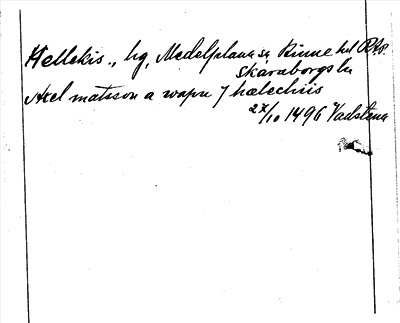 Hellekis., hg, Medelplana sn Kinne hd RAp.
Skaraborgs ln
Axel matsson a wapn J hælechiis
27/10 1496 Vadstena